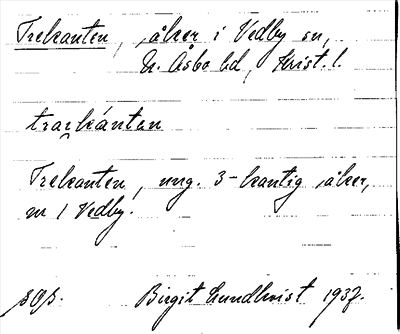 Trekanten, åker i Vedby sn,
N. Åsbo hd, Krist. l.
trarkántan
Trekanten, ung. 3-kantig åker,
nr 1 Vedby.
Birgit Lundkvist 1937.